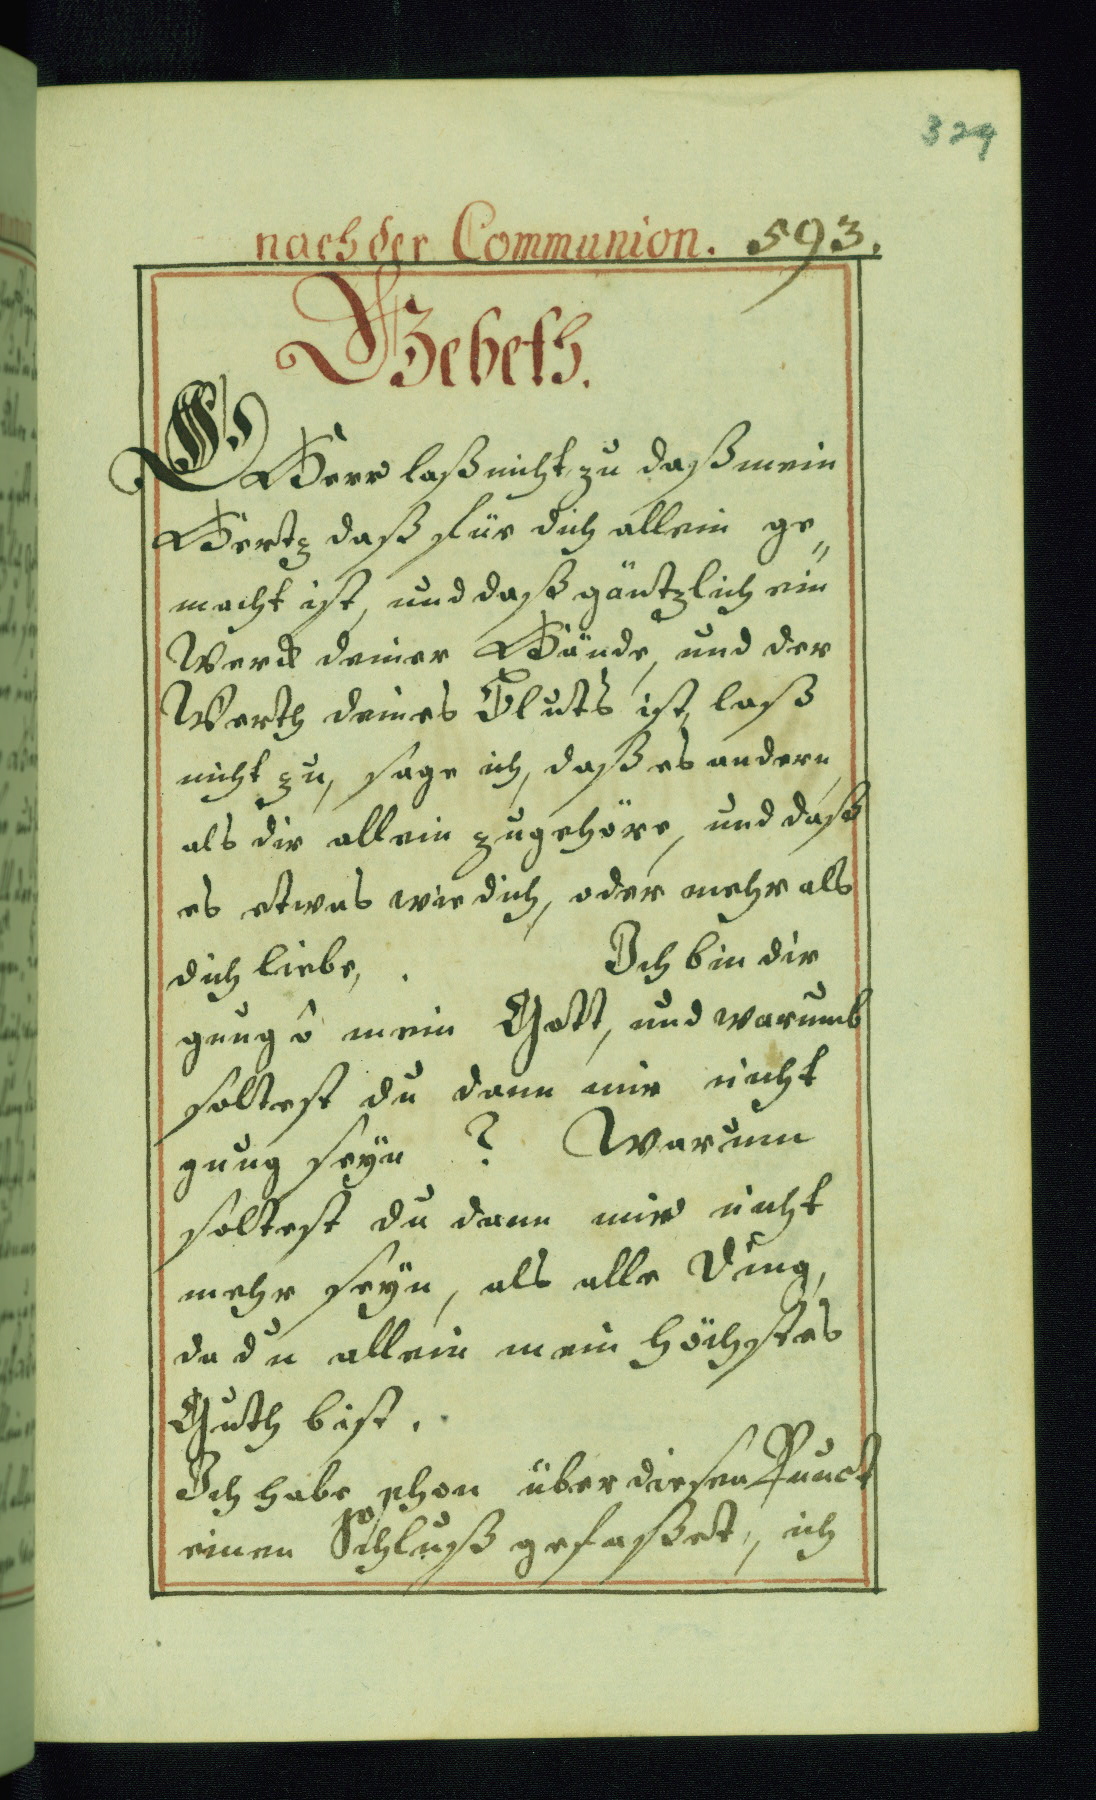 329
nach der Communion. 593.
Gebeth.
O Herr laß nicht zu daß mein
Hertz daß für dich allein ge„
macht ist, und daß gäntzlich ein
Werck deiner Hände, und der
Werth deines Bluts ist, laß
nicht zu, sage ich, daß es andern,
als dir allein zugehöre, und daß
es etwas wie dich, oder mehr als
dich liebe, . Ich bin dir
gnug ô mein Gott, und warumb
soltest du dann mir nicht
gnug seÿn ? Warumm
soltest du dann mir nicht
mehr seÿn, als alle Ding,
da du allein mein höchstes
Guth bist.
Ich habe schon über diesen Punct
einen Schluß gefaßet, ich